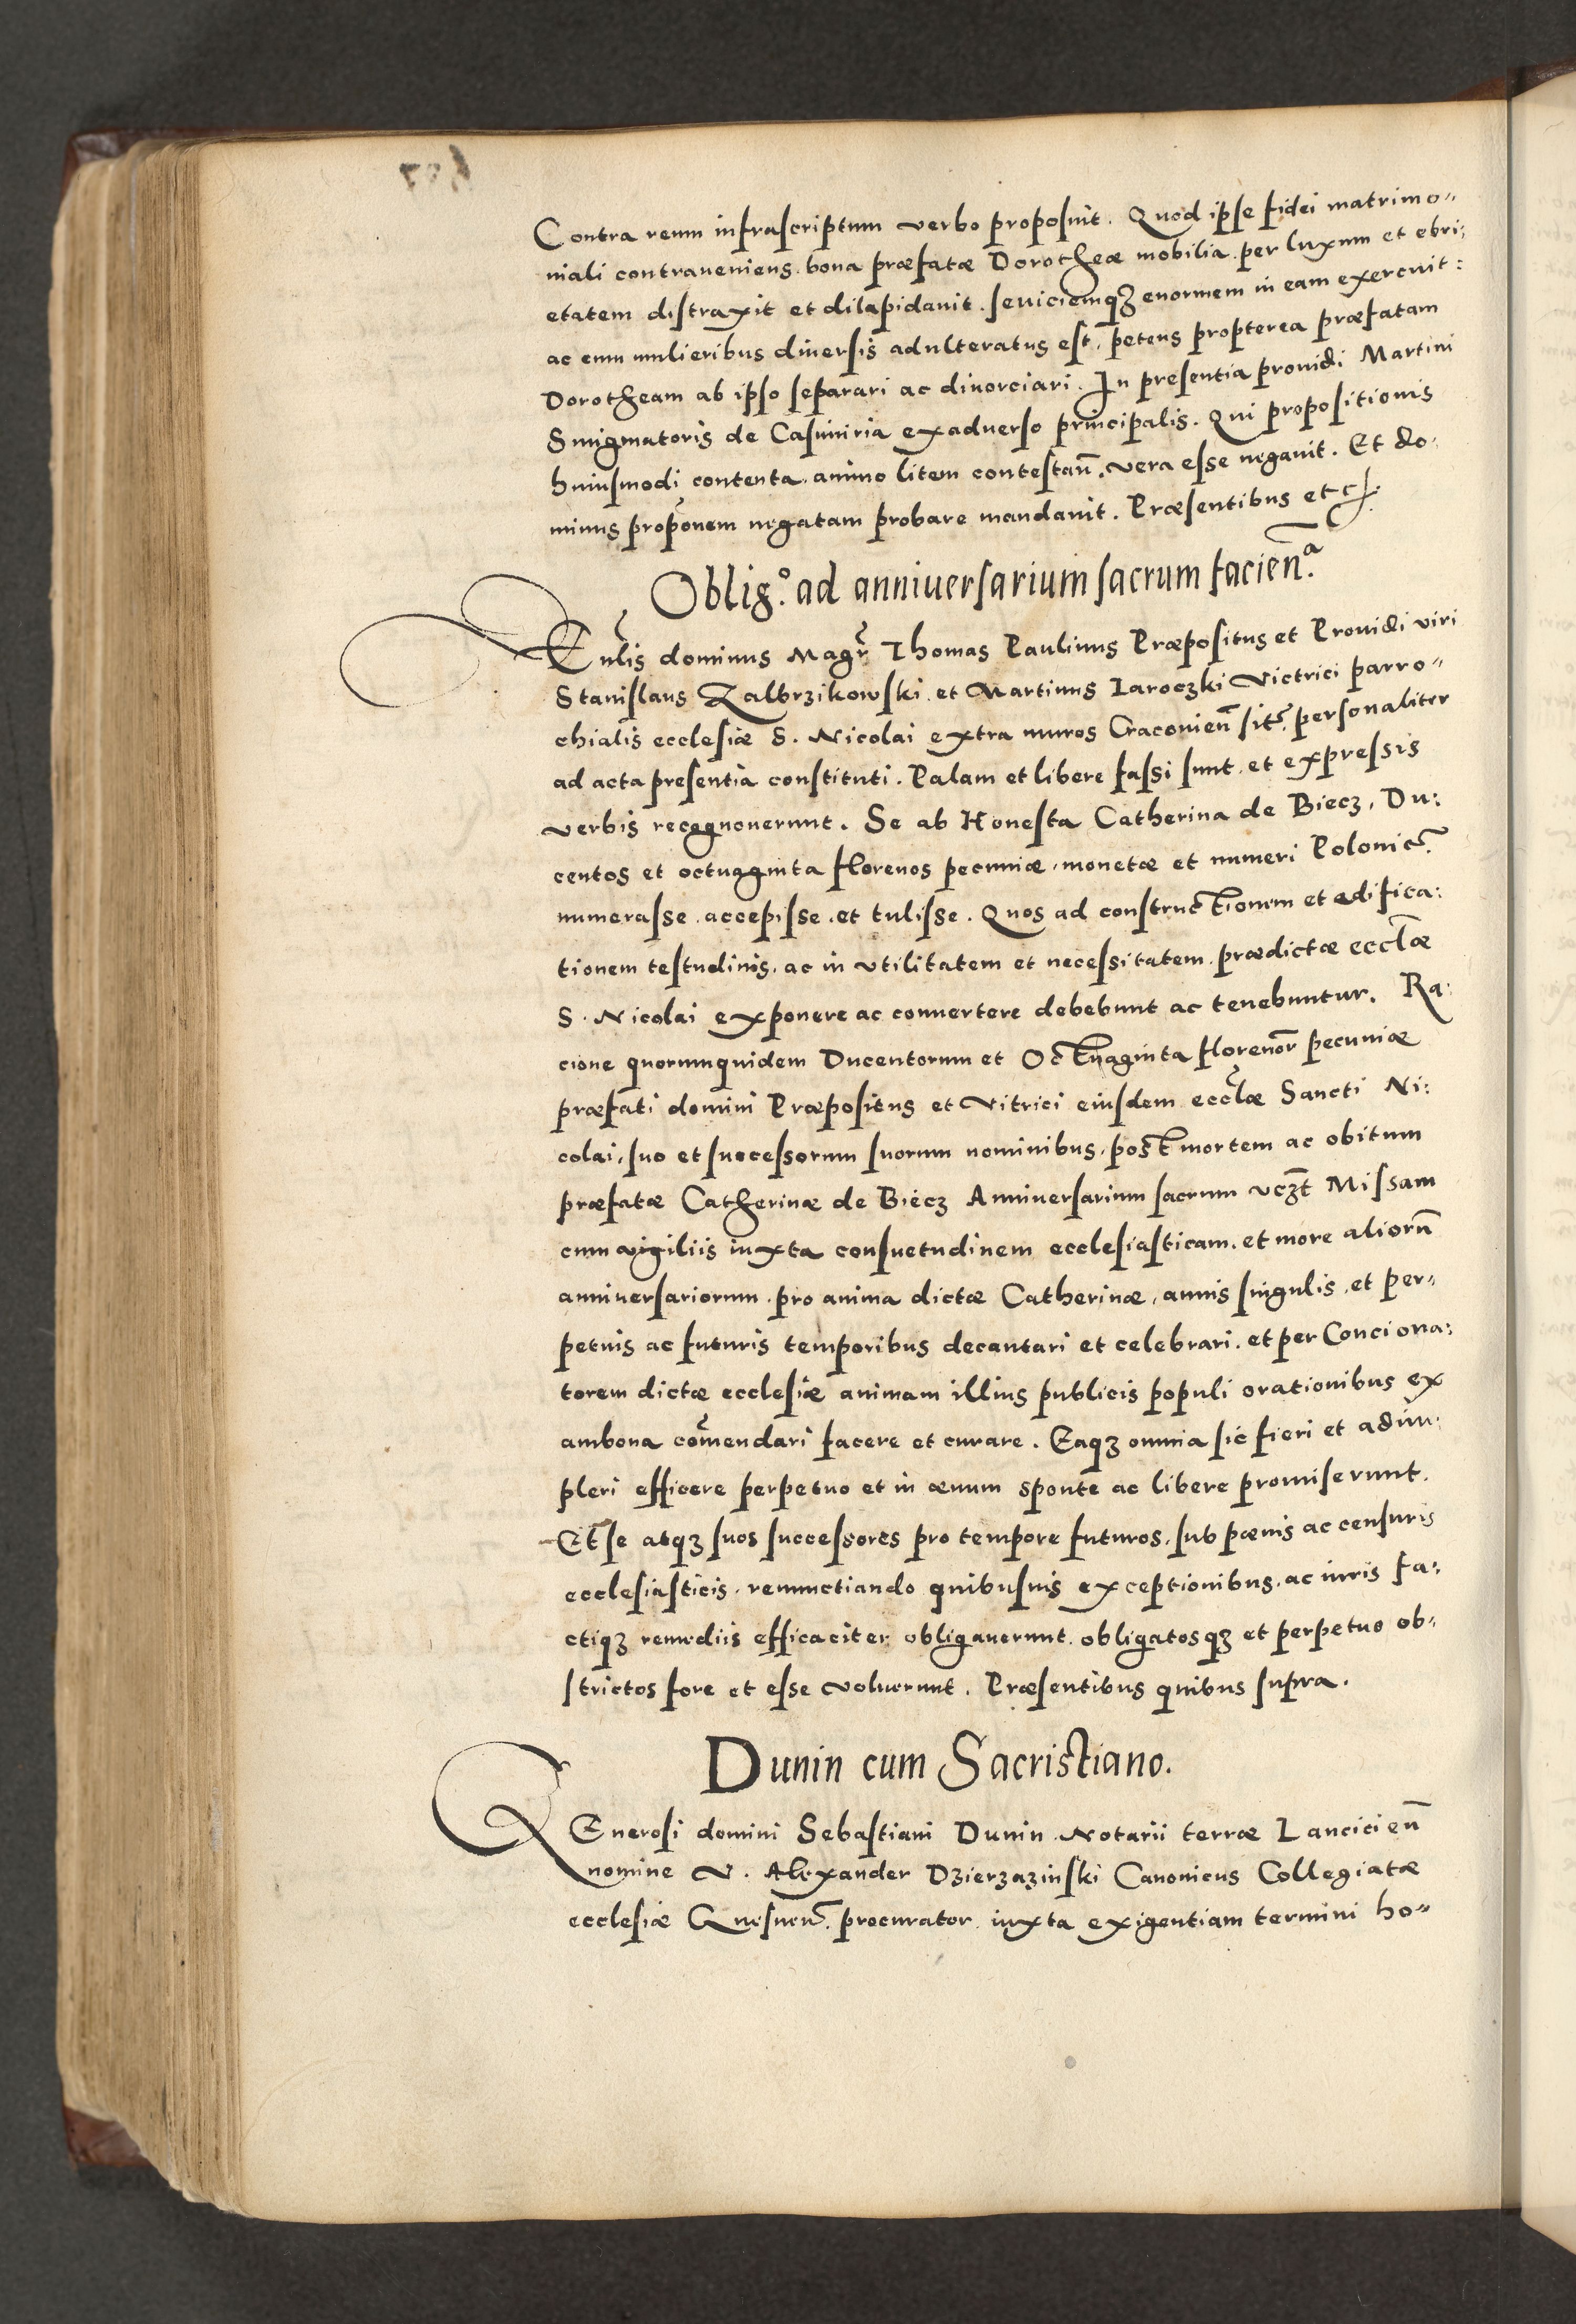 Contra reum infrascriptum verbo proposuit. Quod ipse fidei matrimo„
niali contraueniens, bona præfatæ Dorotheæ mobilia, per luxum et ebri:
etatem distraxit et dilapidauit. seuiciemqȝ enormem in eam exercuit:
ac cum mulieribus diuersis adulteratus est, petens propterea præfatam
Dorotheam ab ipso separari ac diuorciari. In presentia prouidi Martini
Smigmatoris de Casimiria exaduerso principalis. Qui propositionis
huiusmodi contenta, animo litem contestan̄, vera esse negauit. Et do:
minus propōnem negatam probare mandauit. Præsentibus etc.
Oblig.º ad anniuersarium sacrum facien̄.ª
Enlis dominus Magr̄ Thomas Paulinus Præpositus et Prouidi viri
Stanislaus Zalbrzikowski et Martinus Iaroczki Victrici parro„
chialis ecclesiæ S. Nicolai extra muros Cracouien̄ sit̄. personaliter
ad acta presentia constituti. Palam et libere fassi sunt, et expressis
verbis recognouerunt. Se ab Honesta Catherina de Biecz, Du:
centos et octuaginta florenos pecuniæ, monetæ et numeri Polonic̄.
numerasse, accepisse, et tulisse. Quos ad constructionem et edifica:
tionem testudinis, ac in vtilitatem et necessitatem, prædictæ eccl̄æ
S. Nicolai exponere ac conuertere debebunt ac tenebuntur. Ra:
cione quorumquidem Ducentorum et Octuaginta florenor̄ pecuniæ
præfati domini Præpositus et Vitrici eiusdem eccl̄æ Sancti Ni:
colai, suo et successorum suorum nominibus, post mortem ac obitum
præfatæ Catherinæ de Biecz Anniuersarium sacrum vcȝt̄ Missam
cum vigiliis iuxta consuetudinem ecclesiasticam, et more aliorū
anniuersariorum, pro anima dictæ Catherinæ, annis singulis, et per„
petuis ac futuris temporibus decantari et celebrari, et per Conciona:
torem dictæ ecclesiæ animam illius publicis populi orationibus ex
ambona com̄endari facere et curare. Eaqȝ omnia sic fieri et adim:
pleri efficere perpetuo et in æuum sponte ac libere promiserunt.
Et se atqȝ suos successores pro tempore futuros, sub pœnis ac censuris
ecclesiasticis, renunctiando quibusuis exceptionibus, ac iuris fa:
ctiqȝ remediis efficaciter obligauerunt, obligatosqȝ et perpetuo ob„
strictos fore et esse voluerunt. Præsentibus quibus supra.
Dunin cum Sacristiano.
GEnerosi domini Sebastiani Dunin Notarii terræ Lancicien̄
nomine V. Alexander Dzierzazinski Canonicus Collegiatæ
ecclesiæ Gnesnen̄. procurator iuxta exigentiam termini ho„